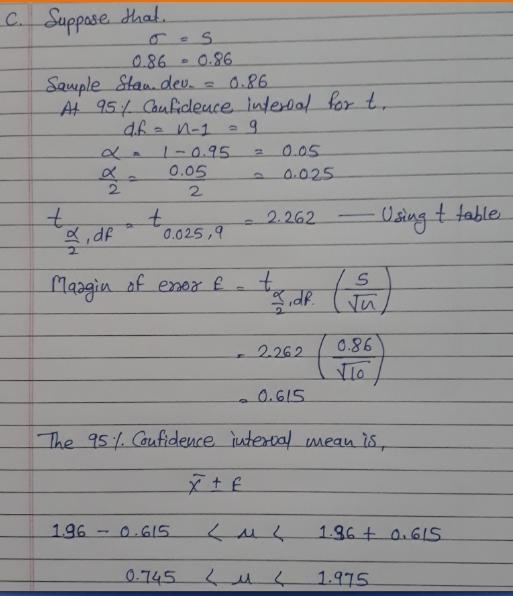 C. Suppose that.
σ = S
0.86 = 0.86
Sample Stan. dev. = 0.86
At 95% Confidence interval for t.
d.f. = n-1 = 9
α = 1 - 0.95 = 0.05
α/2 = 0.05/2 = 0.025
t α/2, df = t 0.025, 9 = 2.262 — Using t table
Margin of error E = t α/2, df. (S/√n)
= 2.262 (0.86/√10)
= 0.615
The 95% Confidence interval mean is,
x̄ ± E
1.96 - 0.615 < μ < 1.36 + 0.615
0.745 < μ < 1.975